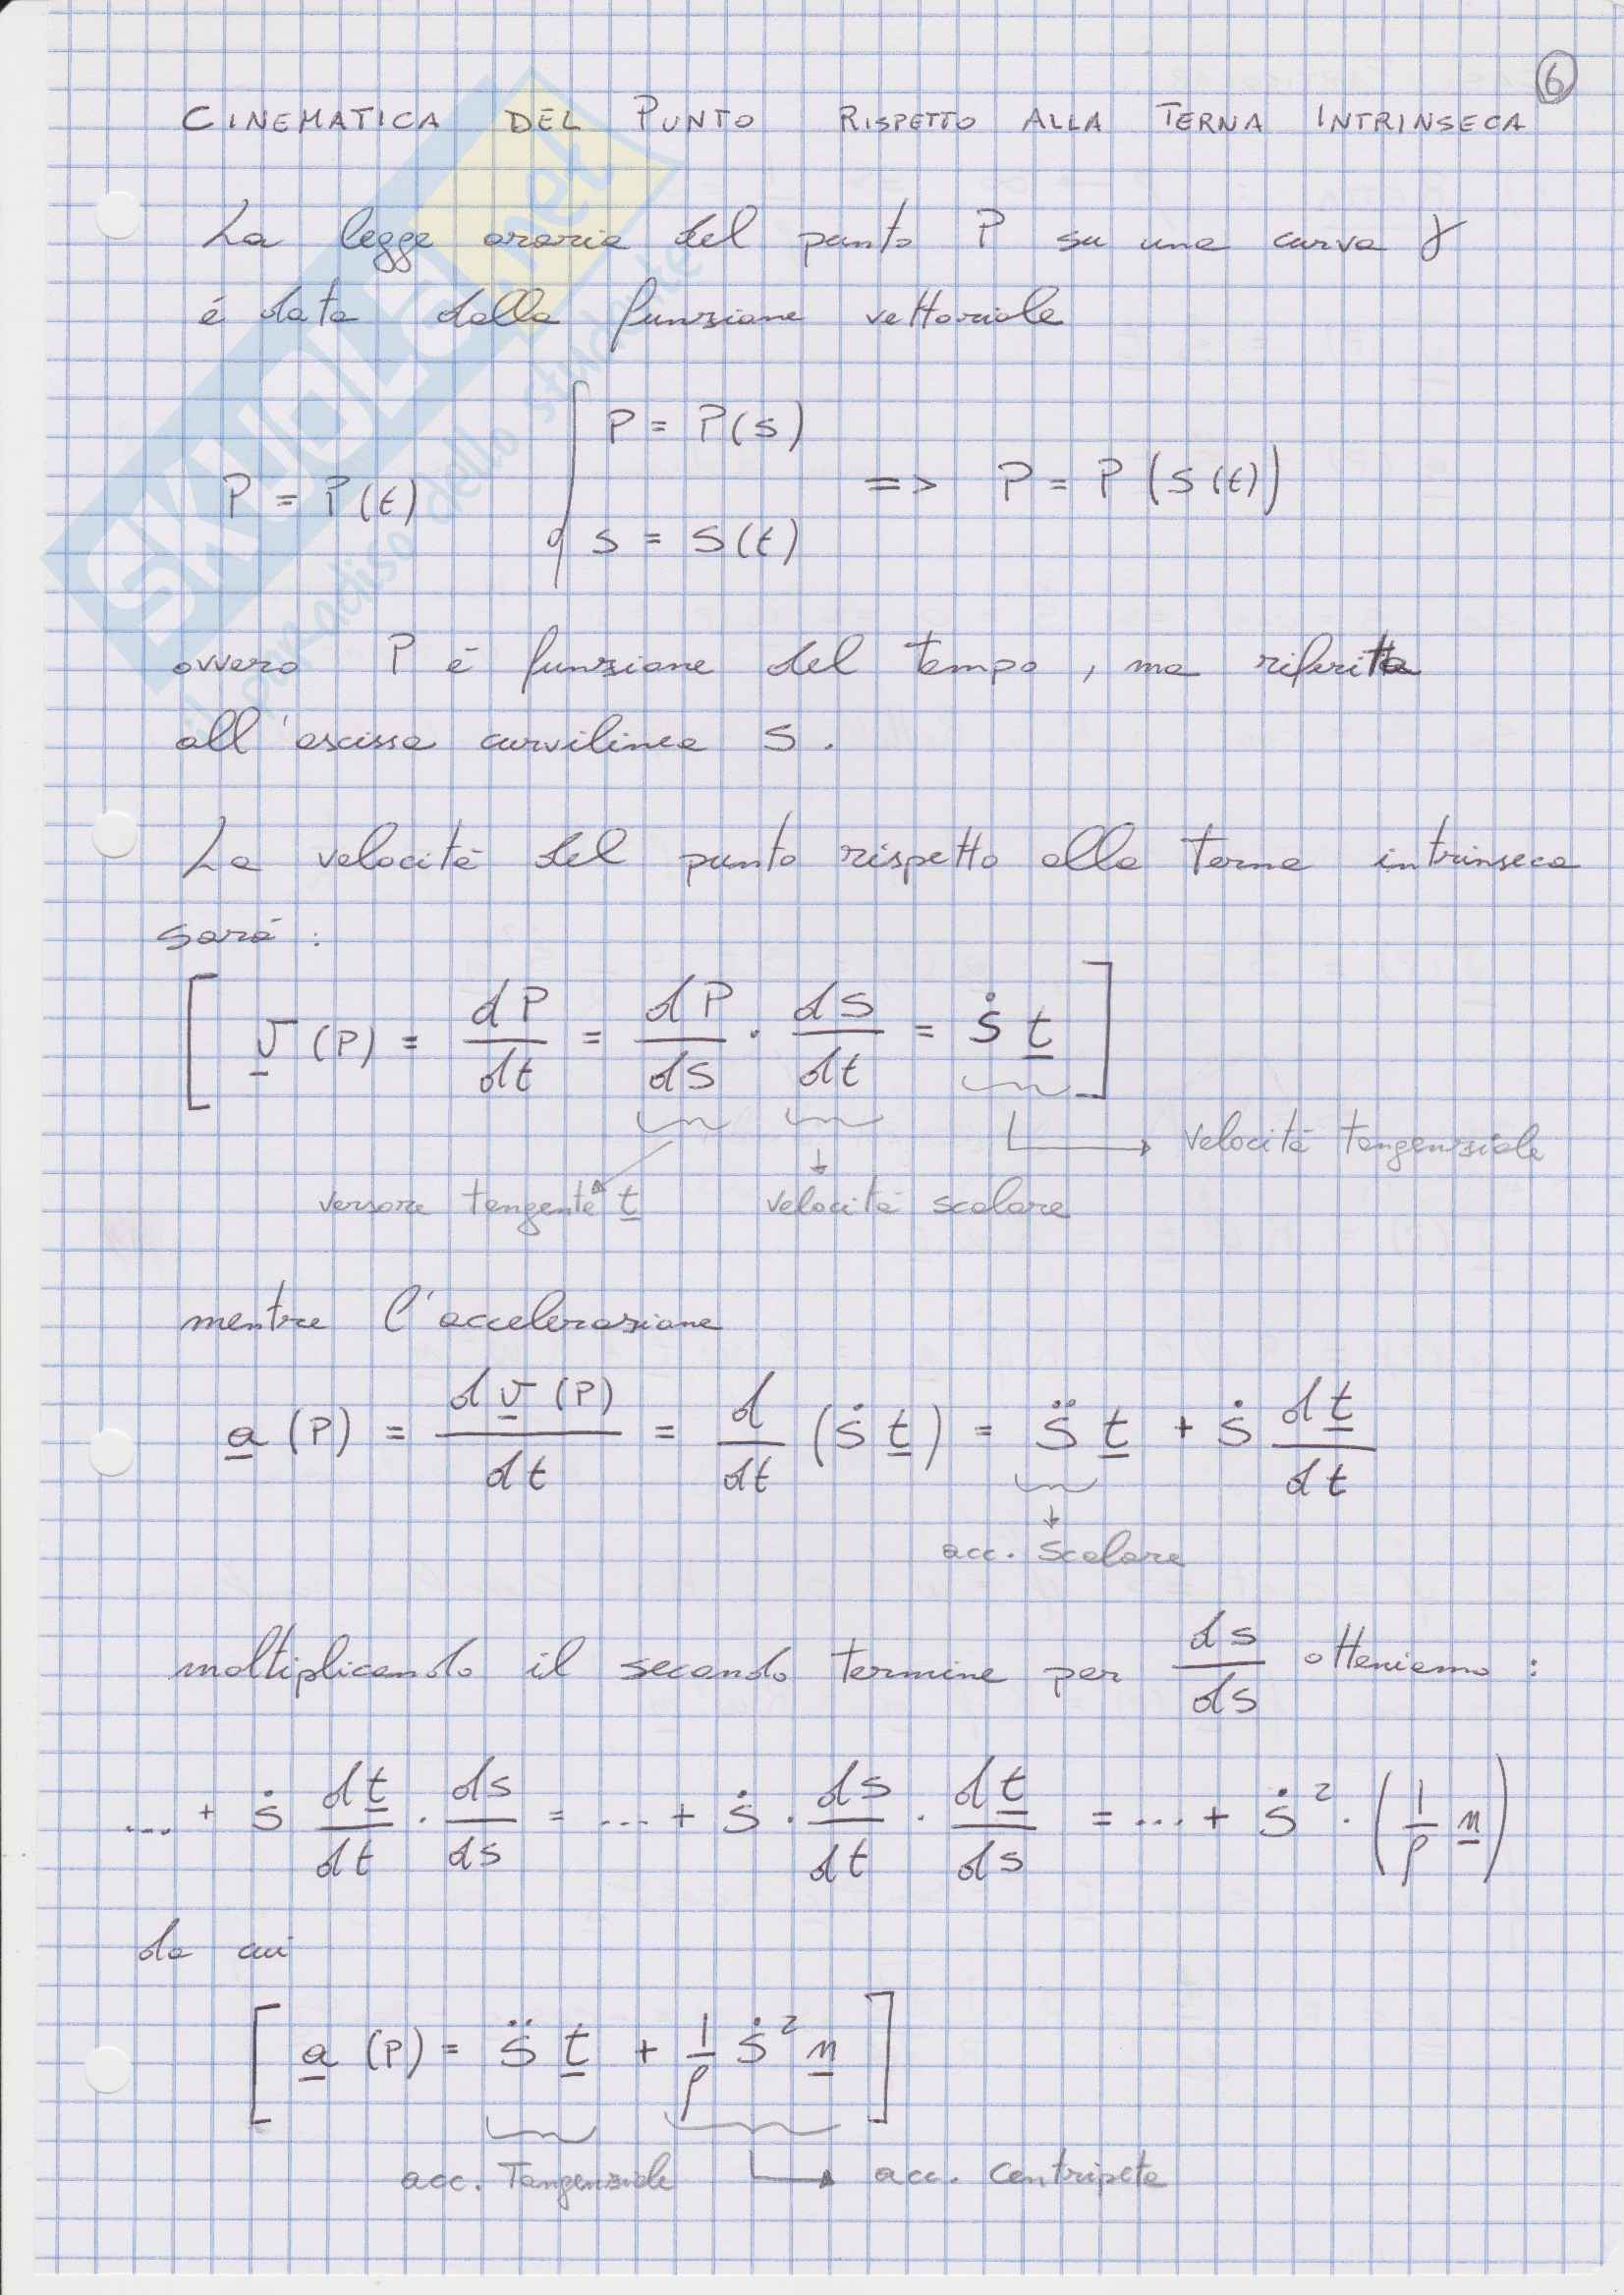 6
CINEMATICA DEL PUNTO RISPETTO ALLA TERNA INTRINSECA
La legge oraria del punto P su una curva γ
é data dalla funzione vettoriale
P = P(t) { P = P(s) s = s(t) => P = P(s(t))
ovvero P è funzione del tempo, ma riferita
all'ascissa curvilinea s.
La velocità del punto rispetto alla terna intrinseca
sarà :
[ v̲ (P) = dP/dt = dP/ds · ds/dt = ṡ t̲ ]
velocità tangenziale
versore tangente t̲ velocità scalare
mentre l'accelerazione
a̲ (P) = d v̲ (P)/dt = d/dt (ṡ t̲) = s̈ t̲ + ṡ d t̲/dt
acc. scalare
moltiplicando il secondo termine per ds/ds otteniamo :
... + ṡ d t̲/dt · ds/ds = ... + ṡ · ds/dt · d t̲/ds = ... + ṡ² · (1/ρ n̲)
da cui
[ a̲ (P) = s̈ t̲ + 1/ρ ṡ² n̲ ]
acc. Tangenziale acc. centripeta
SKUOLA.net
il paradiso dello studente